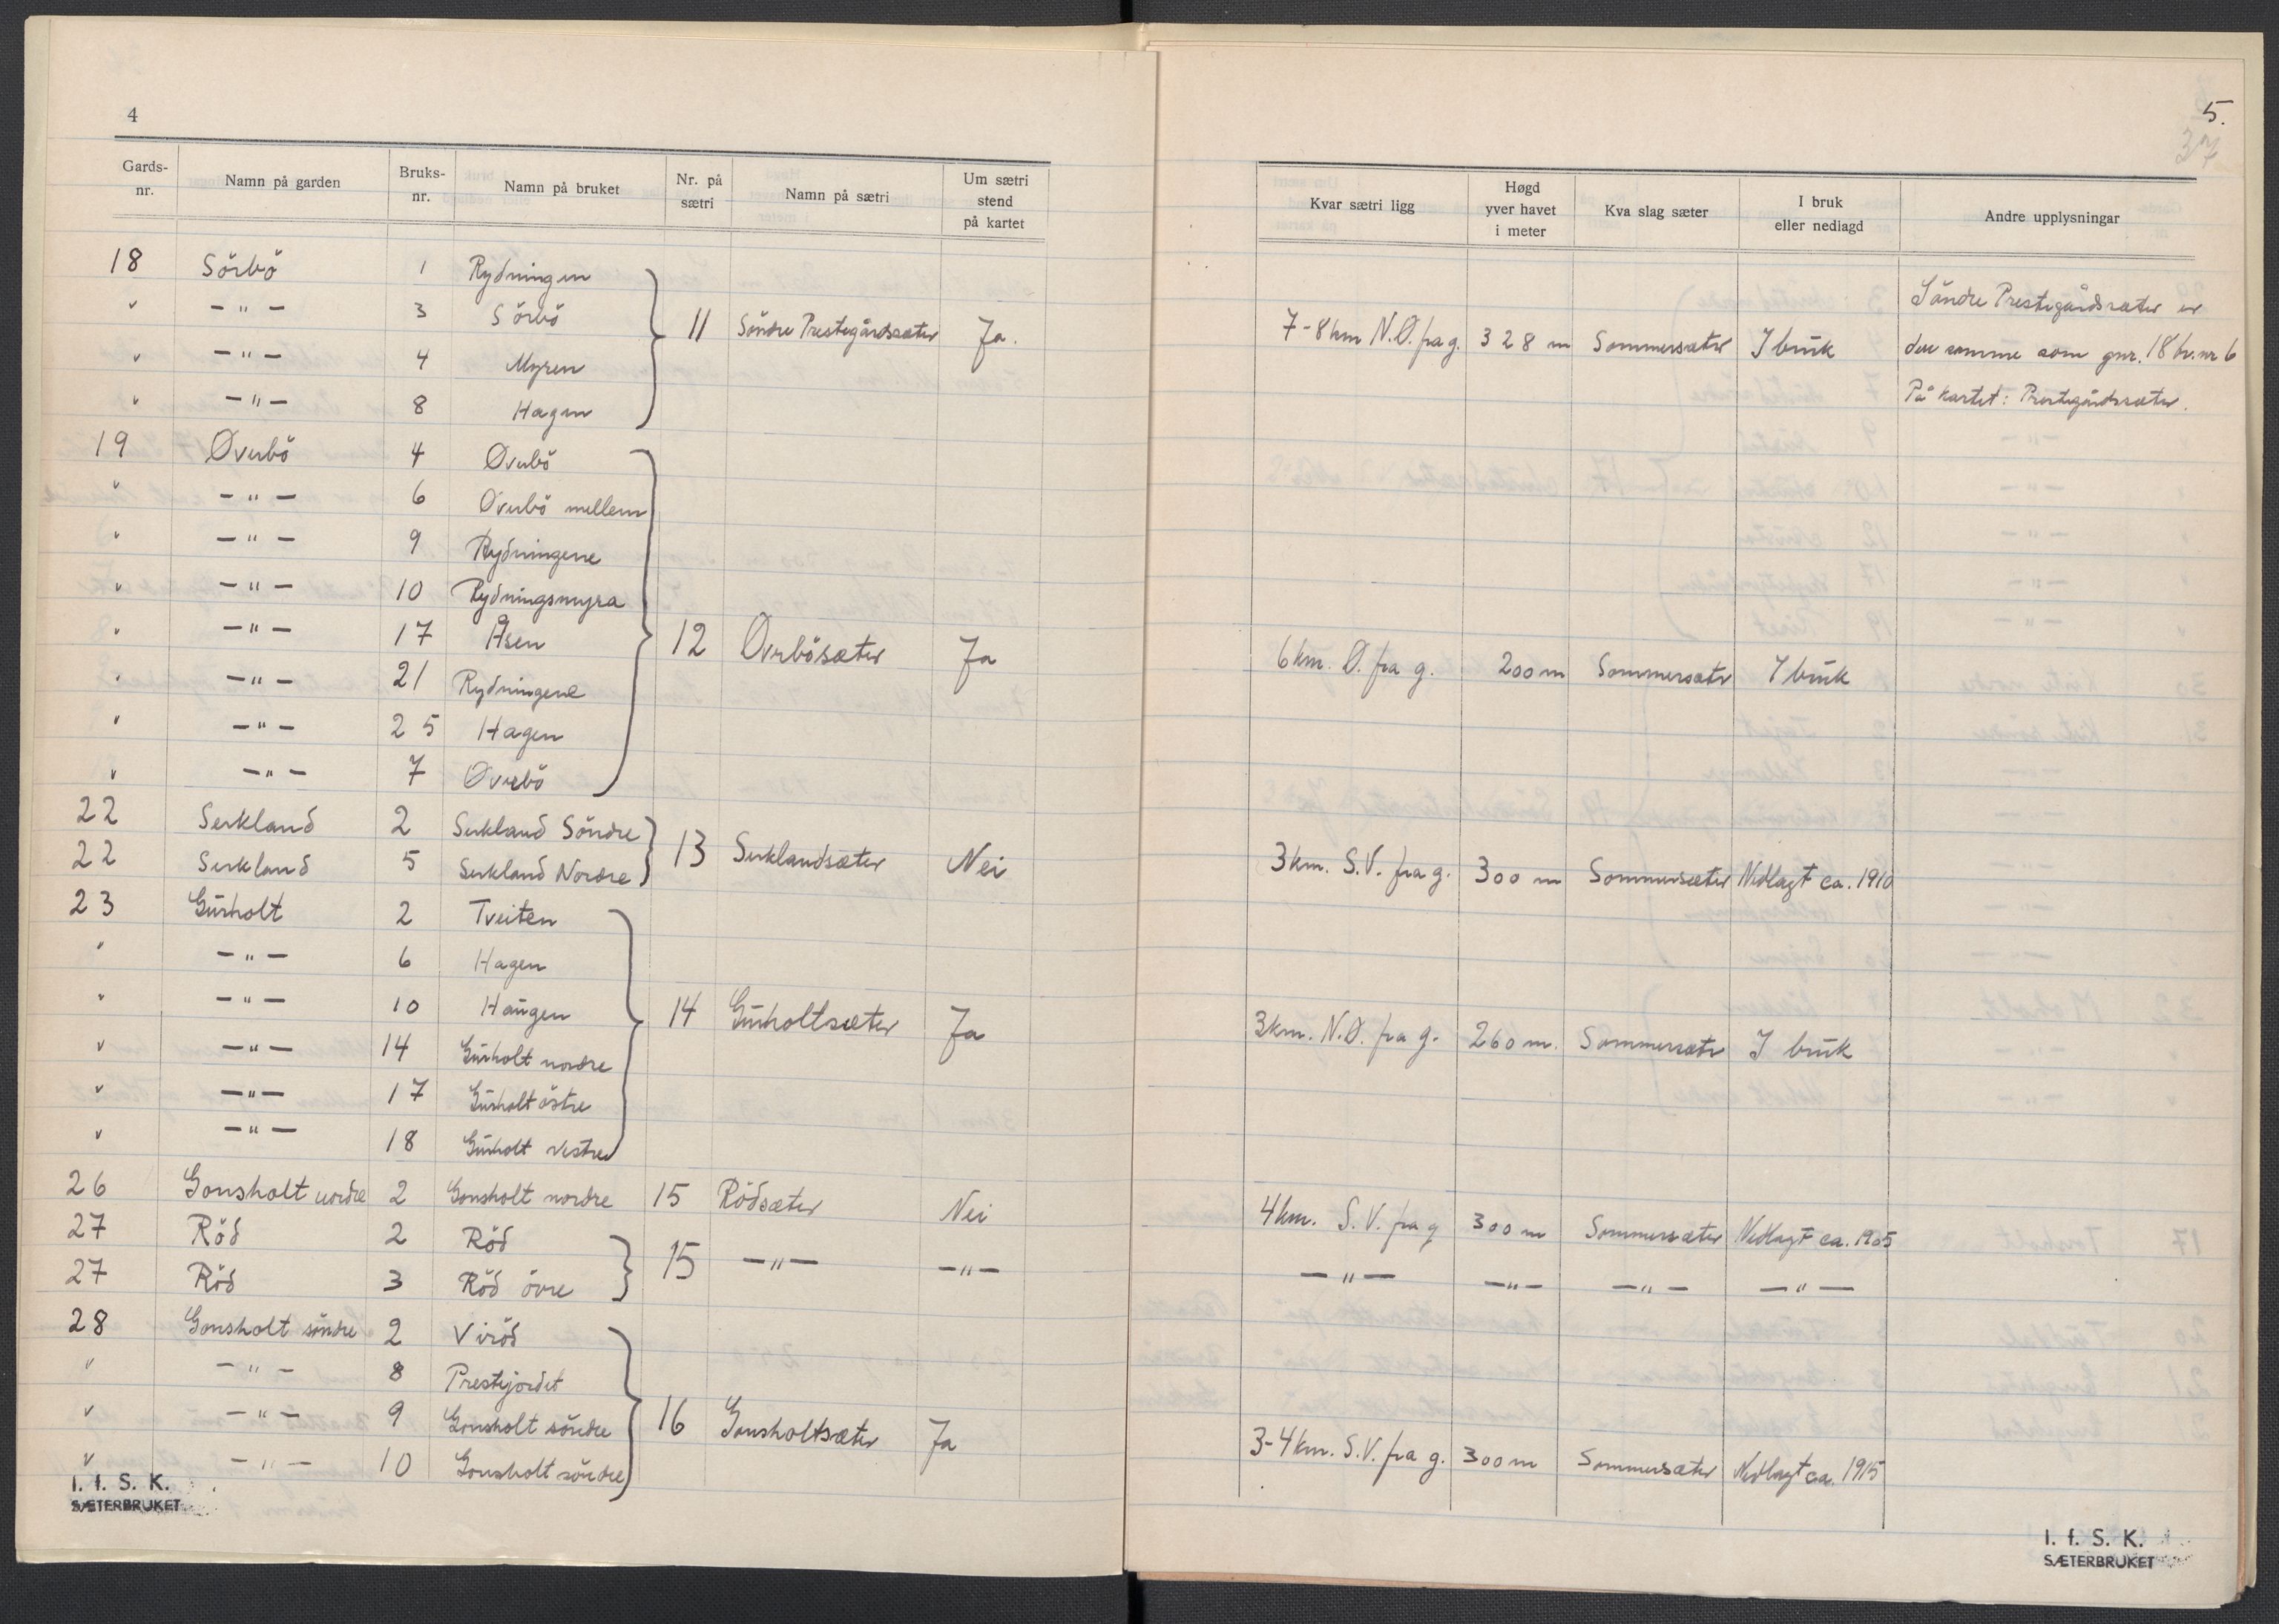 4
Gards-nr. Namn på garden Bruks-nr. Namn på bruket Nr. på sætri Namn på sætri Um sætri stend på kartet
18 Sörbö 1 Rydningen
" —"— 3 Sörbö 11 Söndre Prestegårdssæter Ja.
" —"— 4 Myren
" —"— 8 Hagen
19 Øverbö 4 Øverbö
" —"— 6 Øverbö mellem
" —"— 9 Rydningene
" —"— 10 Rydningsmyra
" —"— 17 Åsen 12 Øverbösæter Ja
" —"— 21 Rydningene
" —"— 25 Hagen
" —"— 7 Øverbö
22 Serkland 2 Serkland Söndre 13 Serklandsæter Nei
22 Serkland 5 Serkland Nordre
23 Gurholt 2 Tveiten
" —"— 6 Hagen
" —"— 10 Haugen 14 Gurholtsæter Ja
" —"— 14 Gurholt nordre
" —"— 17 Gurholt östre
" —"— 18 Gurholt vestre
26 Gonsholt nordre 2 Gonsholt nordre 15 Rödsæter Nei
27 Röd 2 Röd 15 —"— —"—
27 Röd 3 Röd övre
28 Gonsholt söndre 2 Viröd
" —"— 8 Prestejordet
" —"— 9 Gonsholt söndre 16 Gonsholtsæter Ja
" —"— 10 Gonsholt söndre
I. f. S. K.
SÆTERBRUKET
5.
37
Kvar sætri ligg Høgd yver havet i meter Kva slag sæter I bruk eller nedlagd Andre upplysningar
Söndre Prestegårdssæter er
7-8 km N.Ø. fra g. 328 m Sommersæter I bruk den samme som gnr. 18 br.nr 6
På kartet: Prestegårdssæter.
6 km. Ø. fra g. 200 m Sommersæter I bruk
3 km. S.V. fra g. 300 m Sommersæter Nedlagt ca. 1910
3 km. N.Ø. fra g. 260 m. Sommersæter I bruk
4 km. S.V. fra g 300 m Sommersæter Nedlagt ca. 1905
—"— —"— —"— —"—
3-4 km. S.V. fra g. 300 m Sommersæter Nedlagt ca. 1915
I. f. S. K.
SÆTERBRUKET